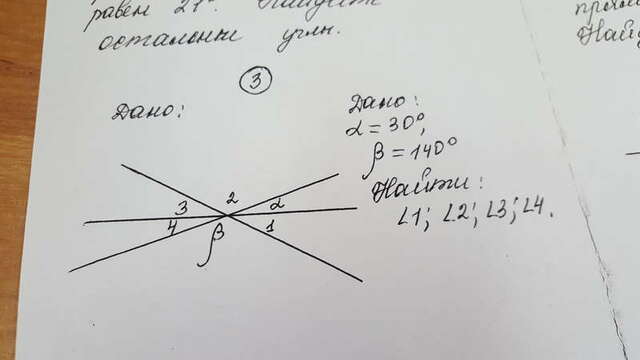 равен 21°. Найдите
остальные углы.
3
Дано:
Дано:
α = 30°,
β = 140°
Найти:
∠1; ∠2; ∠3; ∠4.
2
3
α
4
β
1